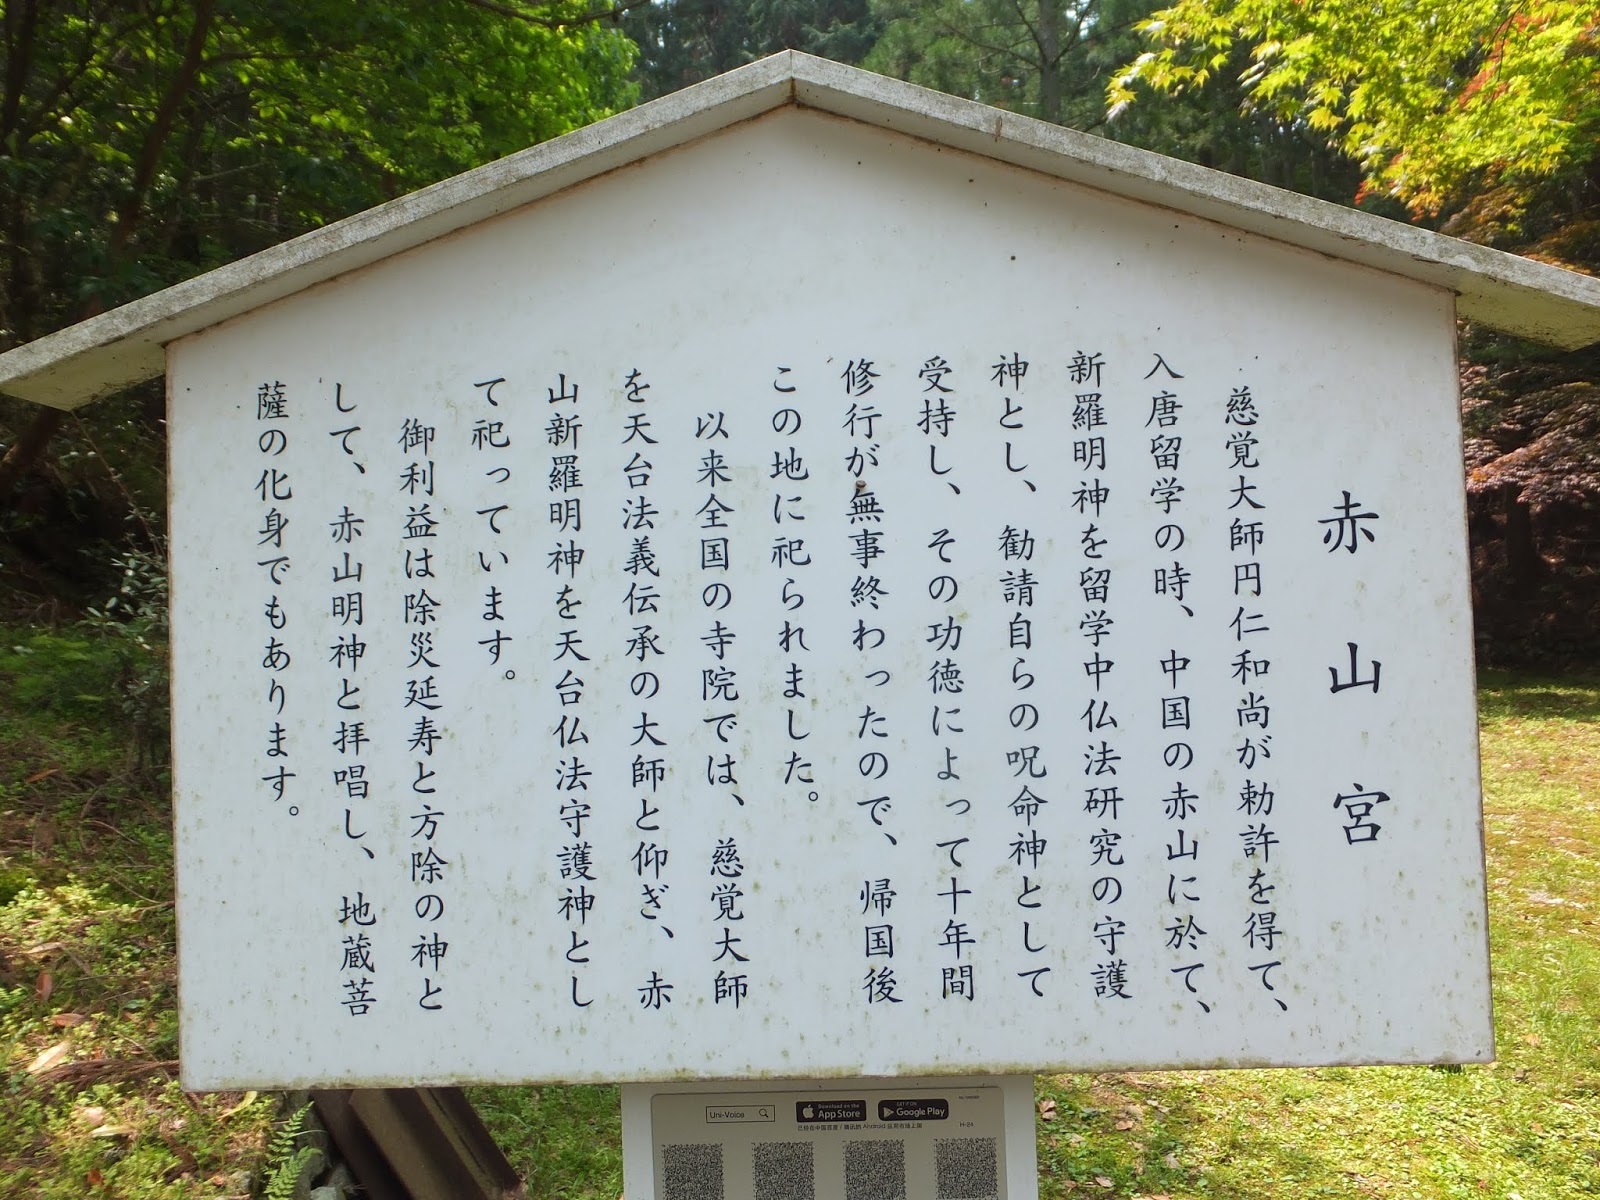 赤山宮
慈覚大師円仁和尚が勅許を得て、
入唐留学の時、中国の赤山に於て、
新羅明神を留学中仏法研究の守護
神とし、勧請自らの呪命神として
受持し、その功徳によって十年間
修行が無事終わったので、帰国後
この地に祀られました。
以来全国の寺院では、慈覚大師
を天台法義伝承の大師と仰ぎ、赤
山新羅明神を天台仏法守護神とし
て祀っています。
御利益は除災延寿と方除の神と
して、赤山明神と拝唱し、地蔵菩
薩の化身でもあります。
Uni-Voice
Download on the App Store
GET IT ON Google Play
H-24